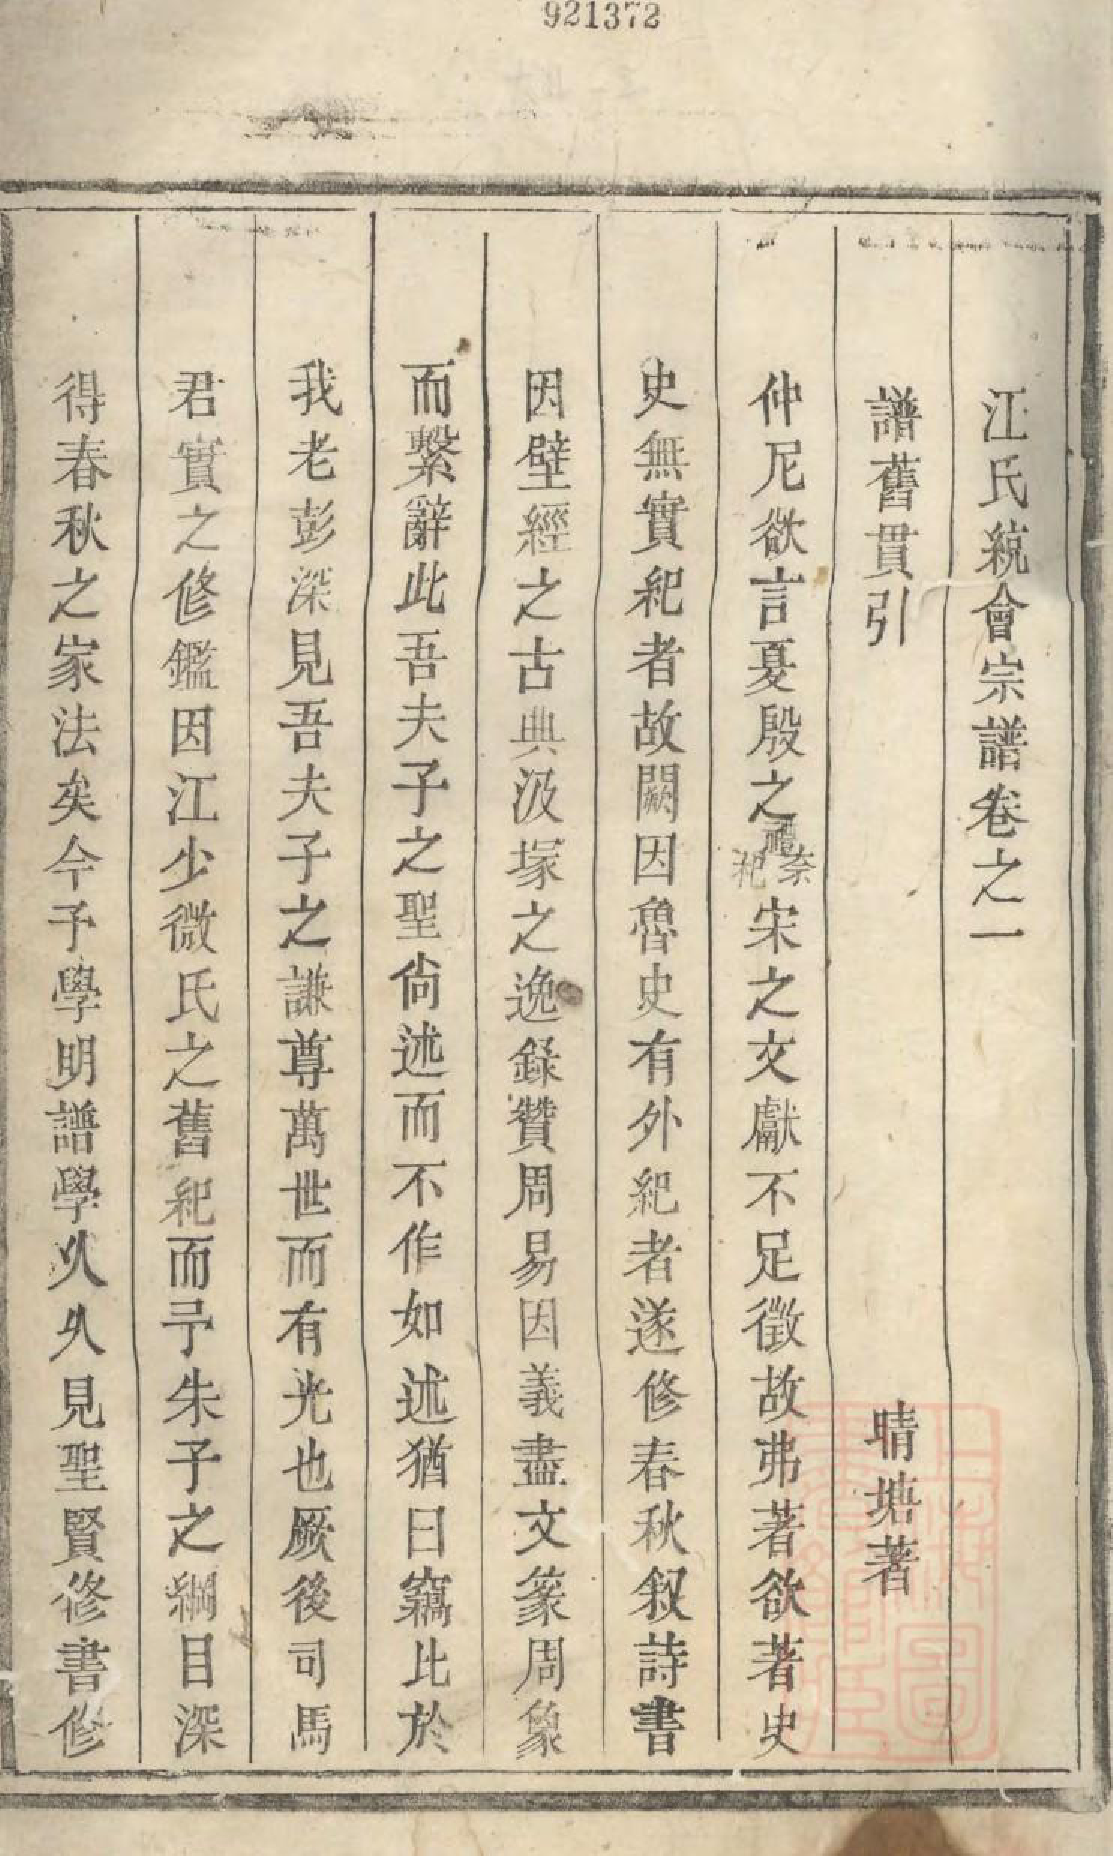 921372
江氏統會宗譜卷之一
譜舊貫引
晴塘著
仲尼欲言夏殷之禮奈杞宋之文獻不足徵故弗著欲著史
史無實紀者故闕因魯史有外紀者遂修春秋叙詩書
因壁經之古典汲塚之逸錄贊周易因義盡文篆周象
而繫辭此吾夫子之聖尙述而不作如述猶曰竊比於
我老彭深見吾夫子之謙尊萬世而有光也厥後司馬
君實之修鑑因江少微氏之舊紀而予朱子之綱目深
得春秋之家法矣今予學明譜學久久見聖賢修書修